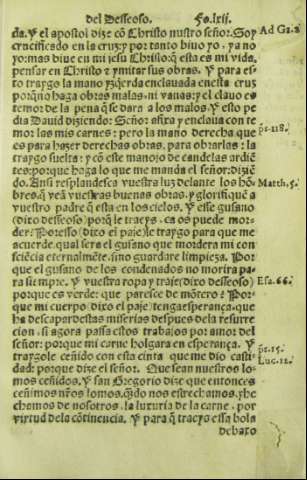 del Desseoso. Fo.lxii.
da. Y el apostol dize cõ Christo nuestro señor. Soy
crucificado en la cruz: y por tanto biuo yo, ya no
yo: mas biue en mi Jesu Christo: q̃ esta es mi vida,
pensar en Christo z ymitar sus obras. Y para es-
to traygo la mano yzquerda enclauada enesta cruz
porq̃ no haga obras malas, ni vanas: y el clauo es
temor de la pena q̃ se dara a los malos. Y esto pe
dia Dauid diziendo: Señor afira y enclaua con te
mor las mis carnes: pero la mano derecha que
es para hazer derechas obras, para obrarlas: la
traygo suelta: y cõ este manojo de candelas ardiẽ
tes: porque haga lo que me manda el señor: dizien
do. Ansi resplandesca vuestra luz delante los hõ
bres, q̃ veã vuestras buenas obras, y glorifiquẽ a
vuestro padre q̃ esta en los cielos. Y esse gusano
(dixo desseoso) porq̃ le traeys, ca os puede mor-
der: Por esso (dixo el paje) le traygo para que me
acuerde, qual sera el gusano que mordera mi con
sciẽcia eternalmẽte, sino guardare limpieza. Por
que el gusano de los condenados no morira pa-
ra siempre. Y vuestra ropa y traje (dixo desseoso)
porque es verde: que paresce de mõtero: Por-
que mi cuerpo (dixo el paje) tenga esperança, que
ha de escapar destas miserias despues dela resurre
cion, si agora passa estos trabajos por amor del
señor: porque mi carne holgara en esperança. Y
traygole ceñido con esta cinta que me dio casti-
dad: porque dize el señor. Que sean nuestros lo-
mos ceñidos. Y san Gregorio dize que entonces
ceñimos nr̃os lomos, q̃do nos estrechamos, y he
chamos de nosotros, la luxuria de la carne, por
virtud dela cõtinencia. Y para q̃ traeys essa bola
debaxo
Ad Gi.2
ps.118.
Matth.5.
Esa.66.
ps.15.
Luc.12.